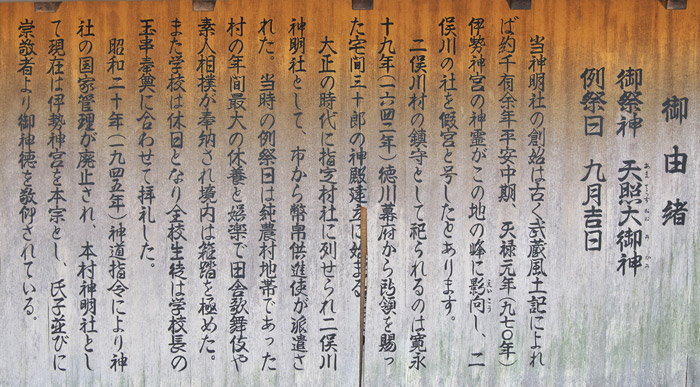 御由緒
御祭神 天照大御神
あまてらすおおみかみ
例祭日 九月吉日
当神明社の創始は古く武蔵風土記によれ
ば約千有余年平安中期、天禄元年(九七〇年)
伊勢神宮の神霊がこの地の峰に影向し、二
えいこう
俣川の社を假宮と号したとあります。
二俣川村の鎮守として祀られるのは寛永
十九年(一六四二年)徳川幕府から所領を賜っ
た宅間三十郎の神殿建立に始まる
大正の時代に指定村社に列せられ二俣川
神明社として、市から幣帛供進使が派遣さ
れた。当時の例祭日は純農村地帯であった
村の年間最大の休養と娯楽で田舎歌舞伎や
素人相撲が奉納され境内は雑踏を極めた。
また学校は休日となり全校生徒は学校長の
玉串奉奠に合わせて拝礼した。
昭和二十年(一九四五年)神道指令により神
社の国家管理が廃止され、本村神明社とし
て現在は伊勢神宮を本宗とし、氏子並びに
崇敬者より御神徳を敬仰されている。